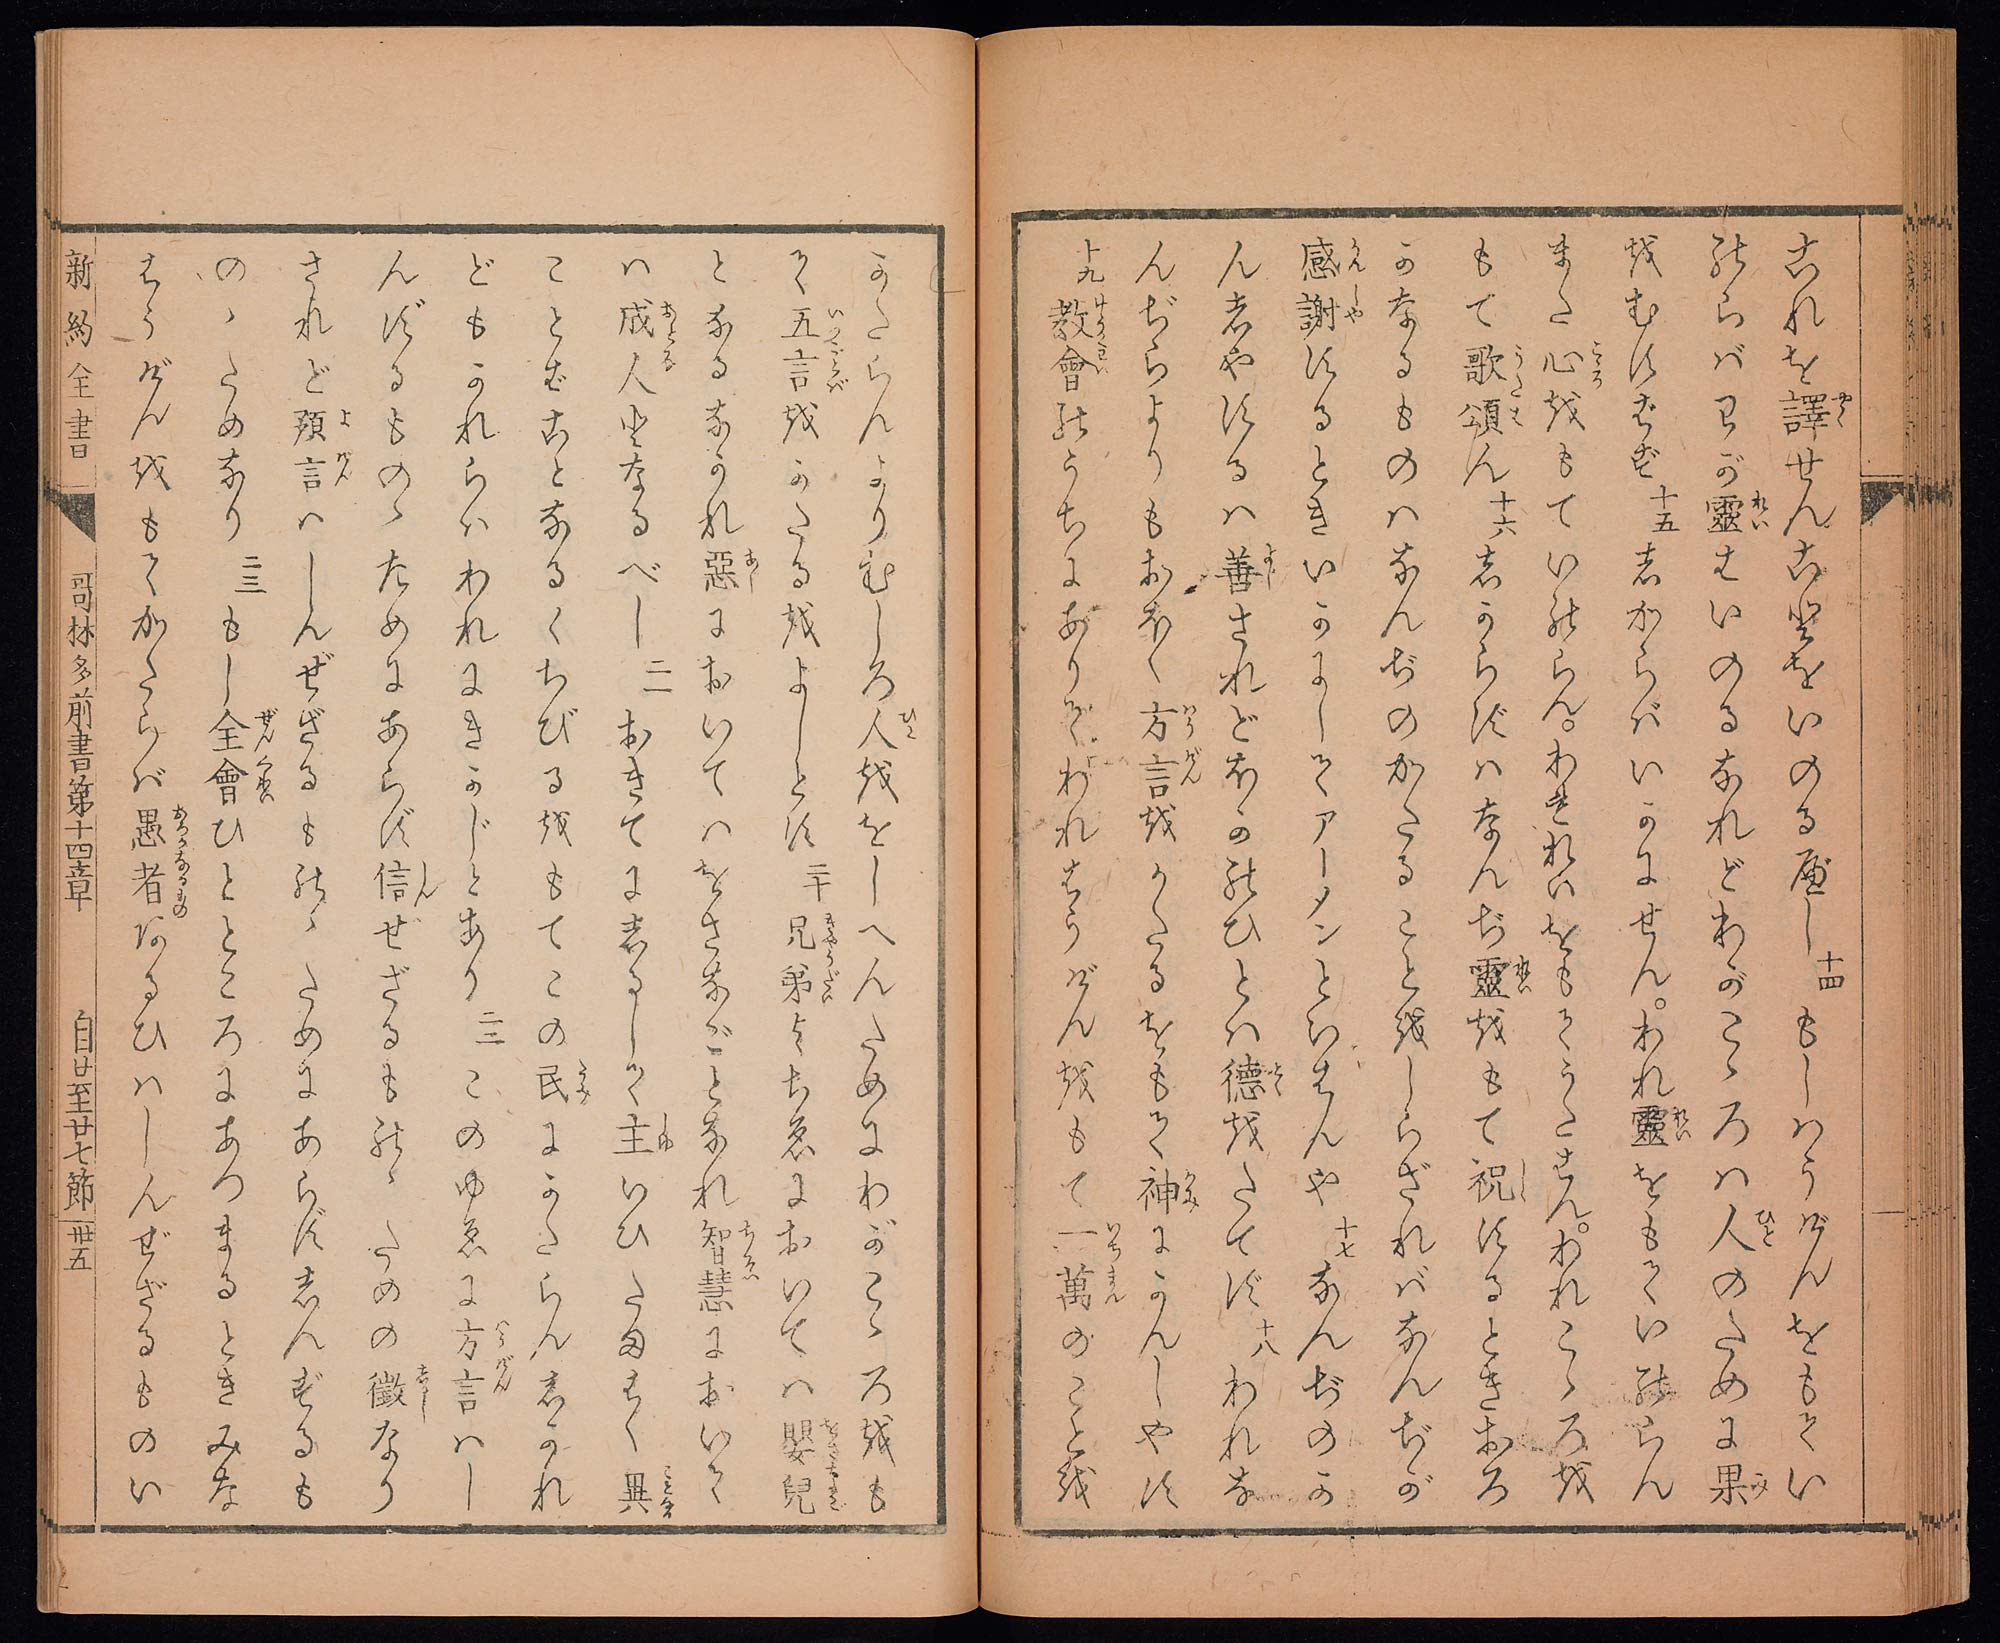 これを譯せんことをいのるべし 十四 もしはうげんをもてい
のらバわが靈はいのるなれどわがこゝろハ人のために果
をむすばず 十五 しからバいかにせん。われ靈をもていのらん
また心をもていのらん。われ靈をもてうたはん。われこゝろを
もて歌頌ん 十六 しからずハなんぢ靈をもて祝するときおろ
かなるものハなんぢのかたることをしらざれバなんぢが
感謝するときいかにしてアーメンといはんや 十七 なんぢのか
んしやするハ善されどほかのひとハ德をたてず 十八 われな
んぢらよりもおほく方言をかたるをもて神にかんしやす
十九 教會のうちにありてわれはうげんをもて一萬のことを
かたらんよりむしろ人ををしへんためにわがこゝろをも
て五言をかたるをよしとす 二十 兄弟よちゑにおいてハ嬰兒
となるなかれ惡においてハをさなごとなれ智慧において
ハ成人となるべし 二一 おきてにしるして主いひたまはく異
ことばことなるくちびるをもてこの民にかたらんしかれ
どもかれらハわれにきかじとあり 二二 このゆゑに方言ハし
んずるものゝためにあらず信ぜざるものゝための徵なり
されど預言ハしんぜざるものゝためにあらずしんずるも
のゝためなり 二三 もし全會ひとところにあつまるときみな
はうげんをもてかたらバ愚者あるひハしんぜざるものい
新約全書
哥林多前書第十四章
自廿至廿七節
卅五